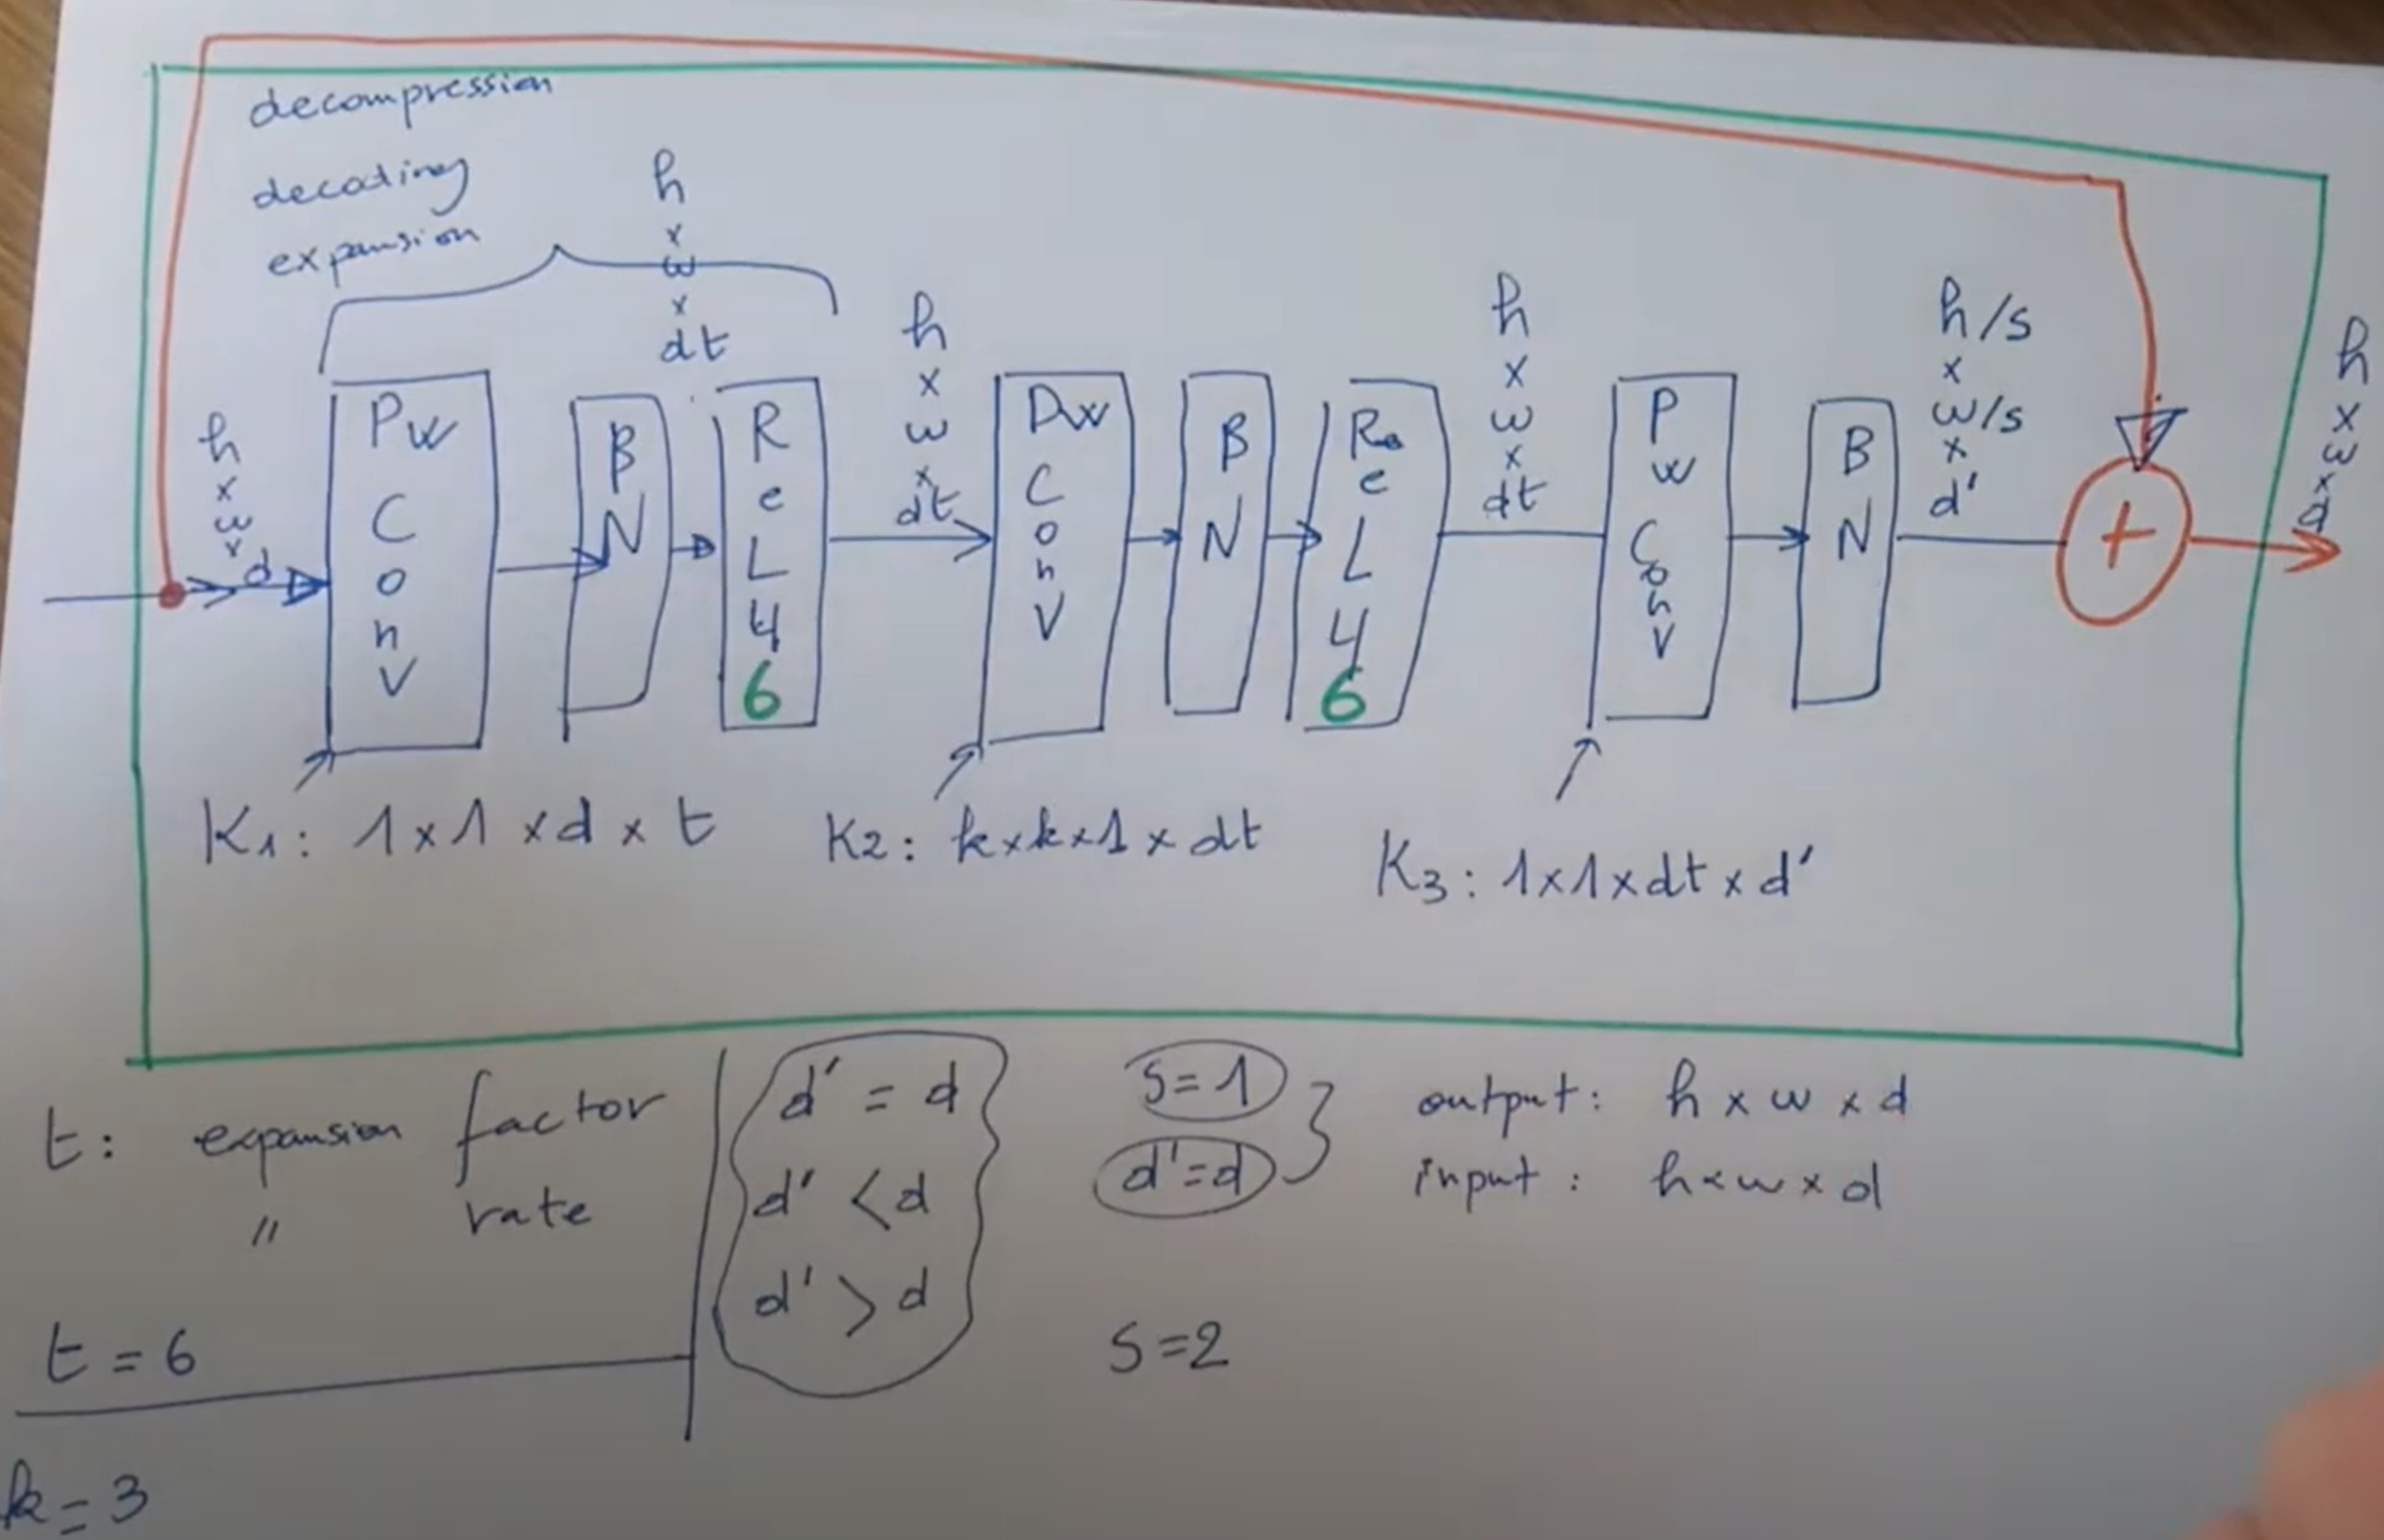 decompression
decoding
expansion
h x w x dt
h x w x d
Pw Conv
BN
ReLU6
h x w x dt
Dw Conv
BN
ReLU6
h x w x dt
Pw Conv
BN
h/s x w/s x d'
+
h x w x d
K1: 1x1xdxt
K2: kxkx1xdt
K3: 1x1xdtxd'
t: expansion factor
" rate
t = 6
k = 3
d' = d
d' < d
d' > d
s=1
d'=d
}
output: h x w x d
input: h x w x d
s=2